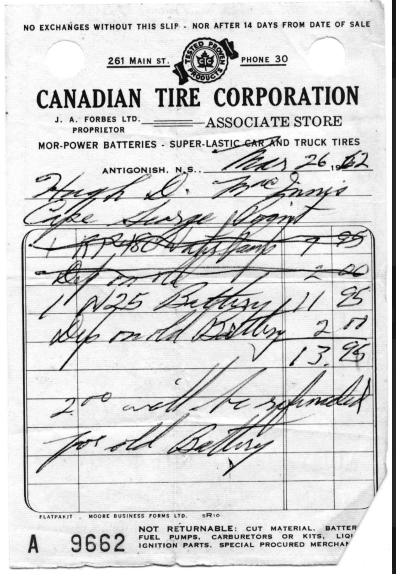 NO EXCHANGES WITHOUT THIS SLIP - NOR AFTER 14 DAYS FROM DATE OF SALE
261 MAIN ST. PHONE 30
TESTED PROVEN
CTC
PRODUCTS
CANADIAN TIRE CORPORATION
J. A. FORBES LTD.
PROPRIETOR
ASSOCIATE STORE
MOR-POWER BATTERIES - SUPER-LASTIC CAR AND TRUCK TIRES
ANTIGONISH, N.S., Mar 26, 62
Hugh D. MacInnis
Cape George Point
1 9 95
Dep on old 2 00
1 N25 Battery 11 95
Dep on old Battery 2 00
13.95
2 00 will be refunded
for old Battery
FLATPAKIT - MOORE BUSINESS FORMS LTD. SR10
A 9662
NOT RETURNABLE: CUT MATERIAL, BATTER
FUEL PUMPS, CARBURETORS OR KITS, LIQU
IGNITION PARTS. SPECIAL PROCURED MERCHAN